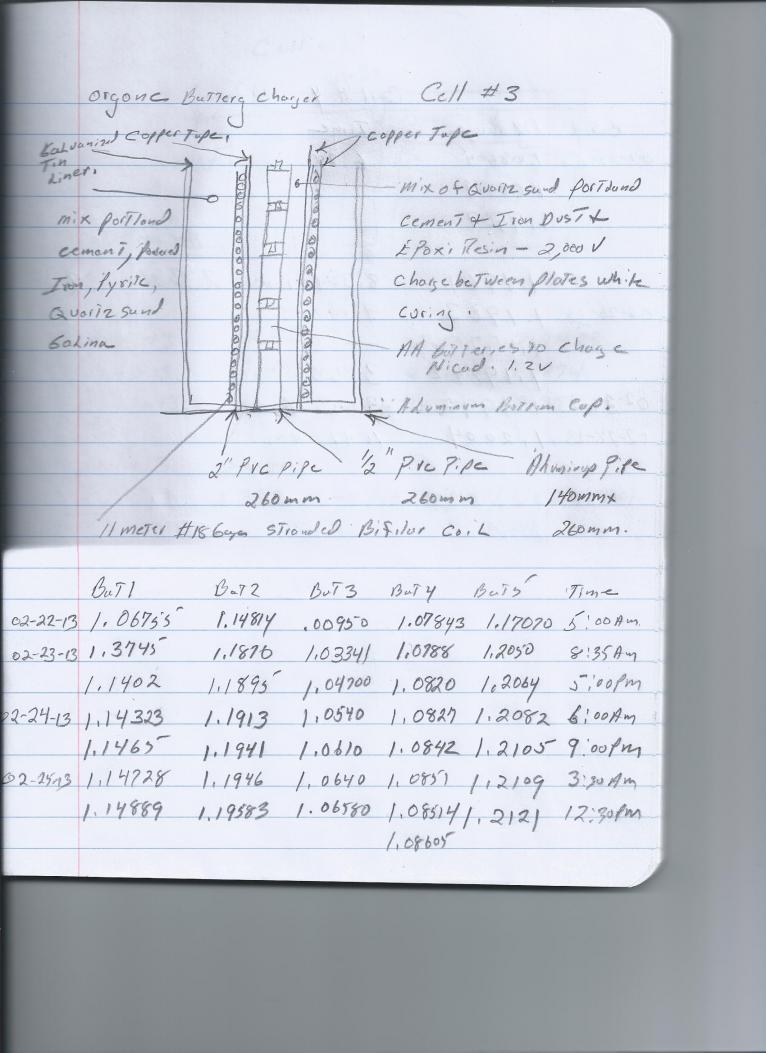 Orgone Battery Charger Cell #3
Galvanized Tin Liner.
Copper Tape.
Copper Tape
mix portland
cement, powered
Iron, Pyrite,
Quartz sund
Galina
mix of Quartz sund portland
cement & Iron Dust &
Epoxi Resin - 2,000 V
charge between plates while
curing.
AA Batteries to charge
Nicad. 1.2V
Aluminum Bottom Cap.
2" PVC pipe 1/2" PVC Pipe Aluminup Pipe
260mm 260mm 140mm x
260mm.
11 meter #18 Gage stranded Bifilar Coil
BaT1 BaT2 BaT3 BaT4 BaT5 Time
02-22-13 1.06755 1.14814 .00950 1.07843 1.17070 5:00Am
02-23-13 1.3745 1.1870 1.03341 1.0788 1.2050 8:35Am
1.1402 1.1895 1.04700 1.0820 1.2064 5:00Pm
02-24-13 1.14323 1.1913 1.0540 1.0827 1.2082 6:00Am
1.1465 1.1941 1.0610 1.0842 1.2105 9:00Pm
02-25-13 1.14728 1.1946 1.0640 1.0851 1.2109 3:30Am
1.14889 1.19583 1.06580 1.08514 1.2121 12:30Pm
1.08605